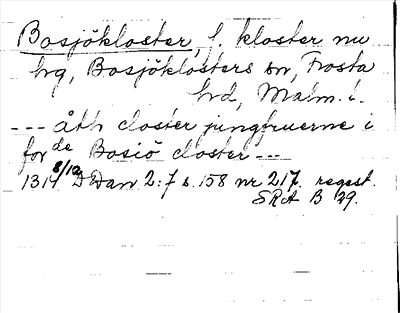 Bosjökloster, f. kloster nu
hg, Bosjöklosters sn, Frosta
hrd, Malm. l.
--- åth closter jungfruerne i
for de Bosiö closter ---
1314 8/12 DDan 2:7 s. 158 nr 217. regest.
SRA B 29.